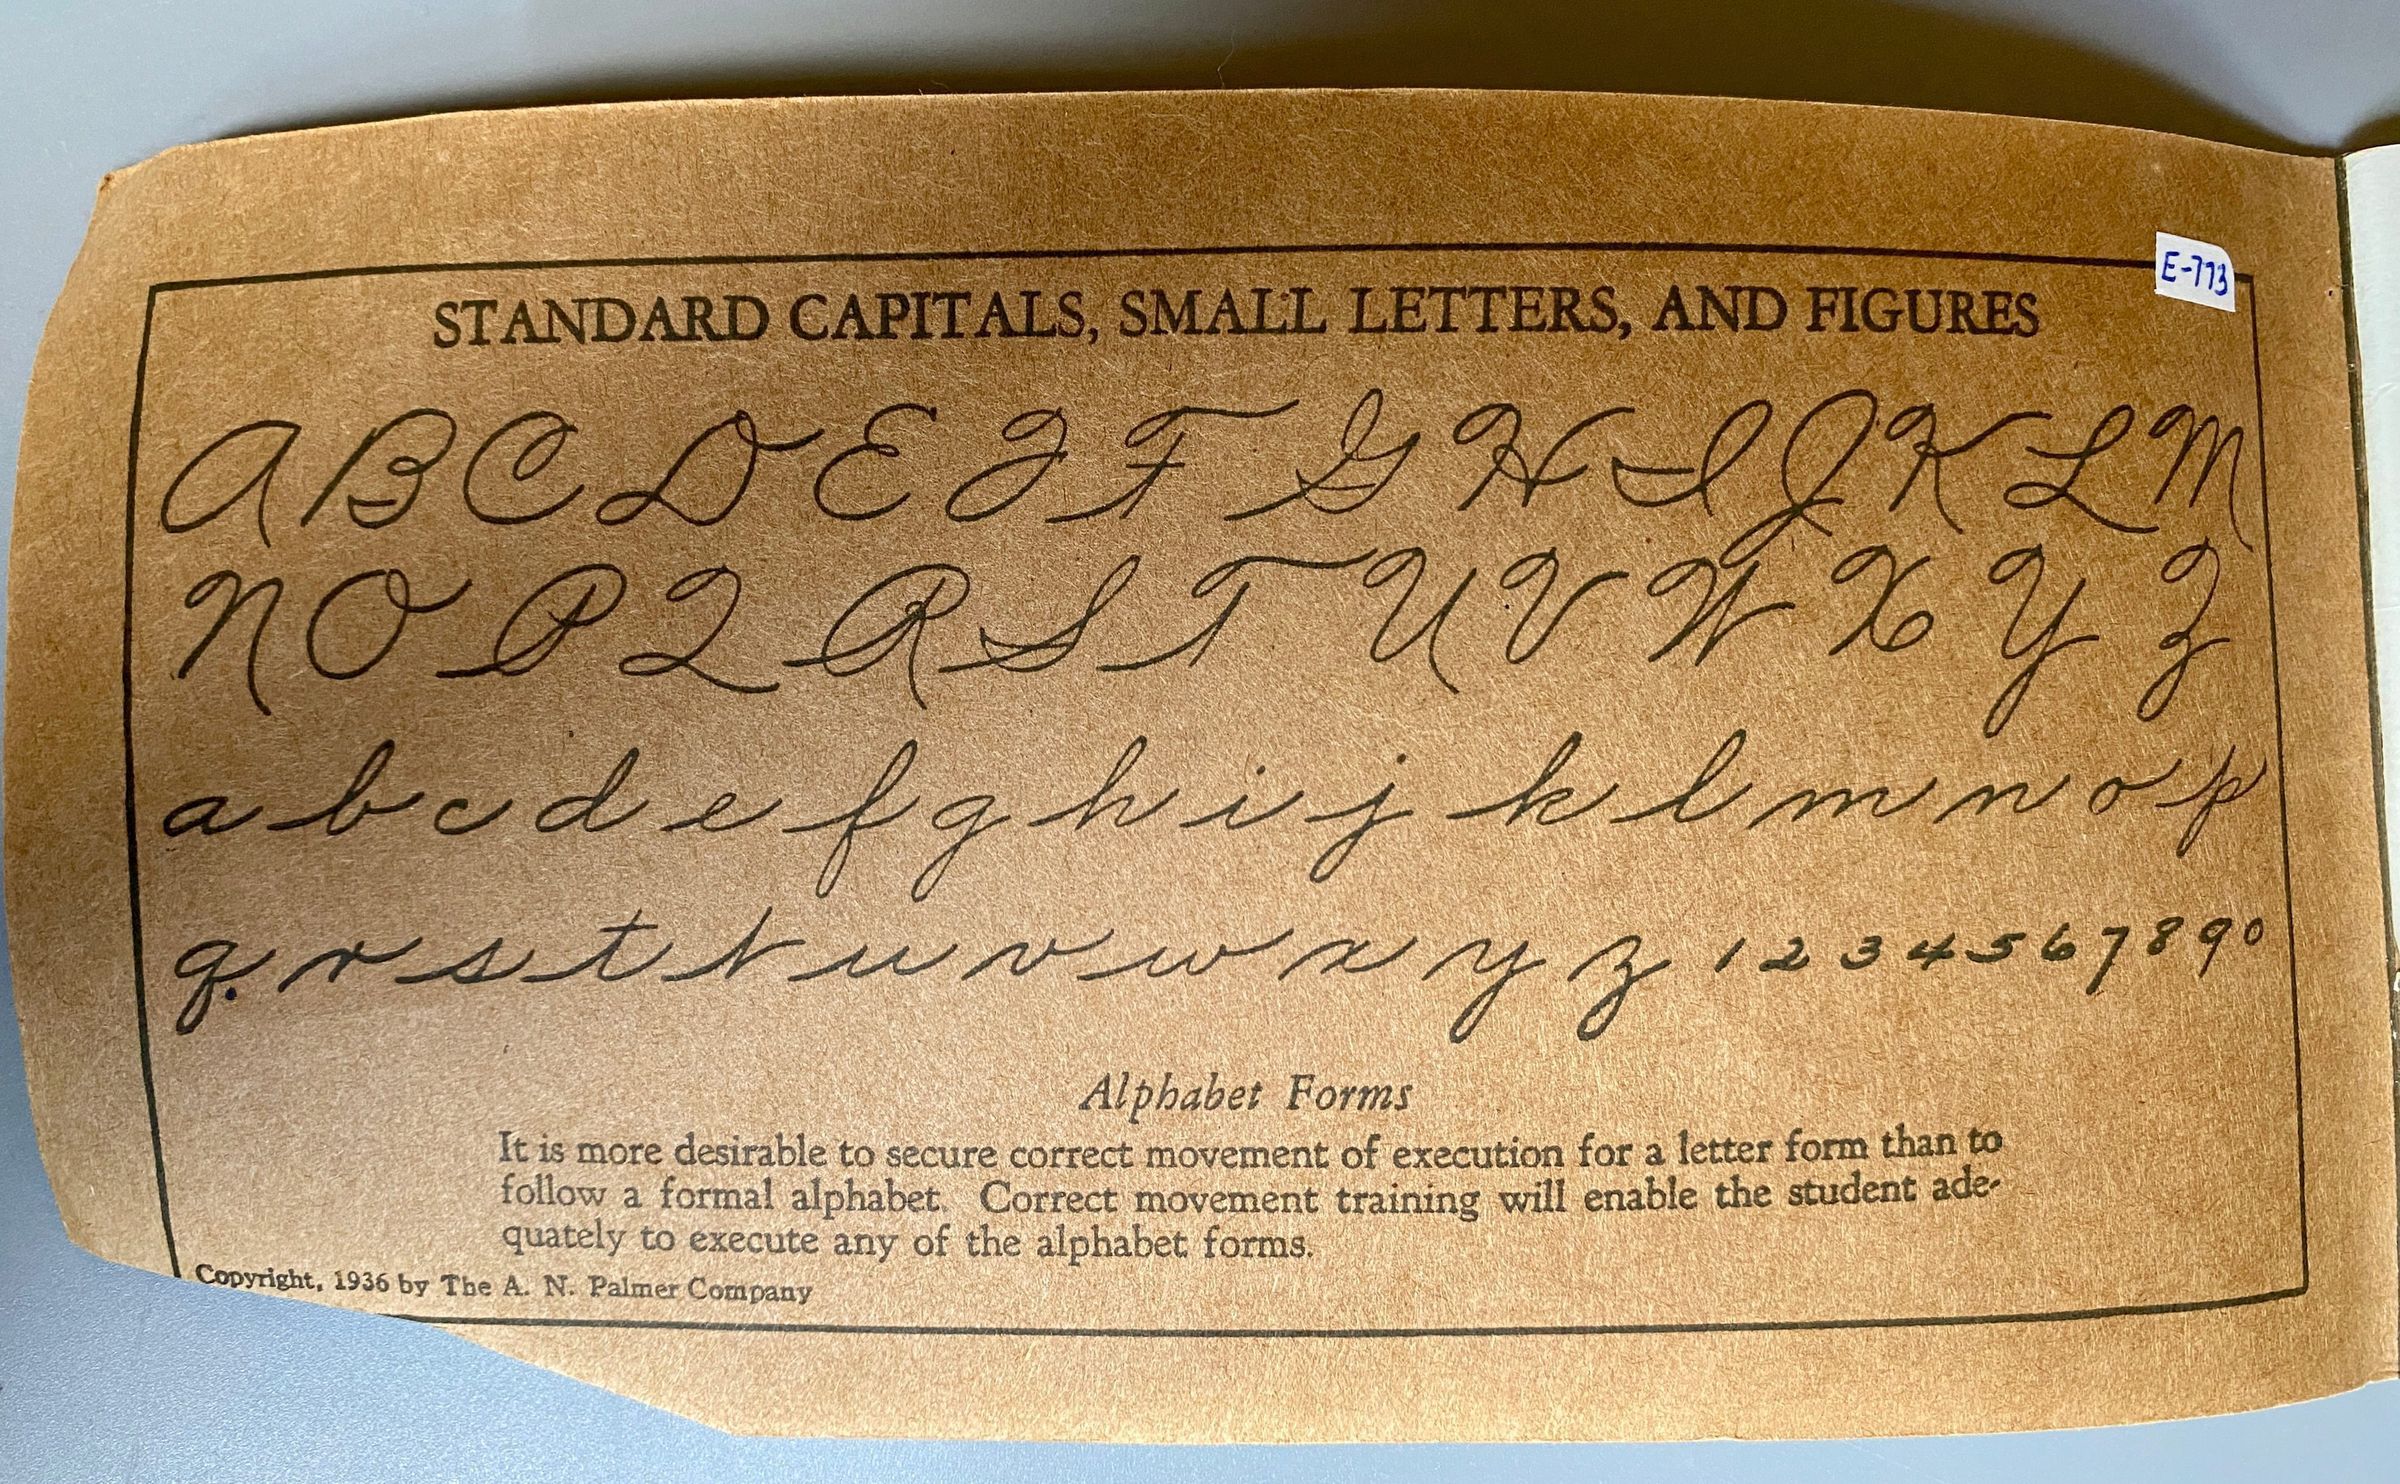 E-773
STANDARD CAPITALS, SMALL LETTERS, AND FIGURES
A B C D E F F G H I J K L M
N O P Q R S T U V W X Y Z
a b c d e f g h i j k l m n o p
q r s t t u v w x y z 1 2 3 4 5 6 7 8 9 0
Alphabet Forms
It is more desirable to secure correct movement of execution for a letter form than to
follow a formal alphabet. Correct movement training will enable the student ade-
quately to execute any of the alphabet forms.
Copyright, 1936 by The A. N. Palmer Company